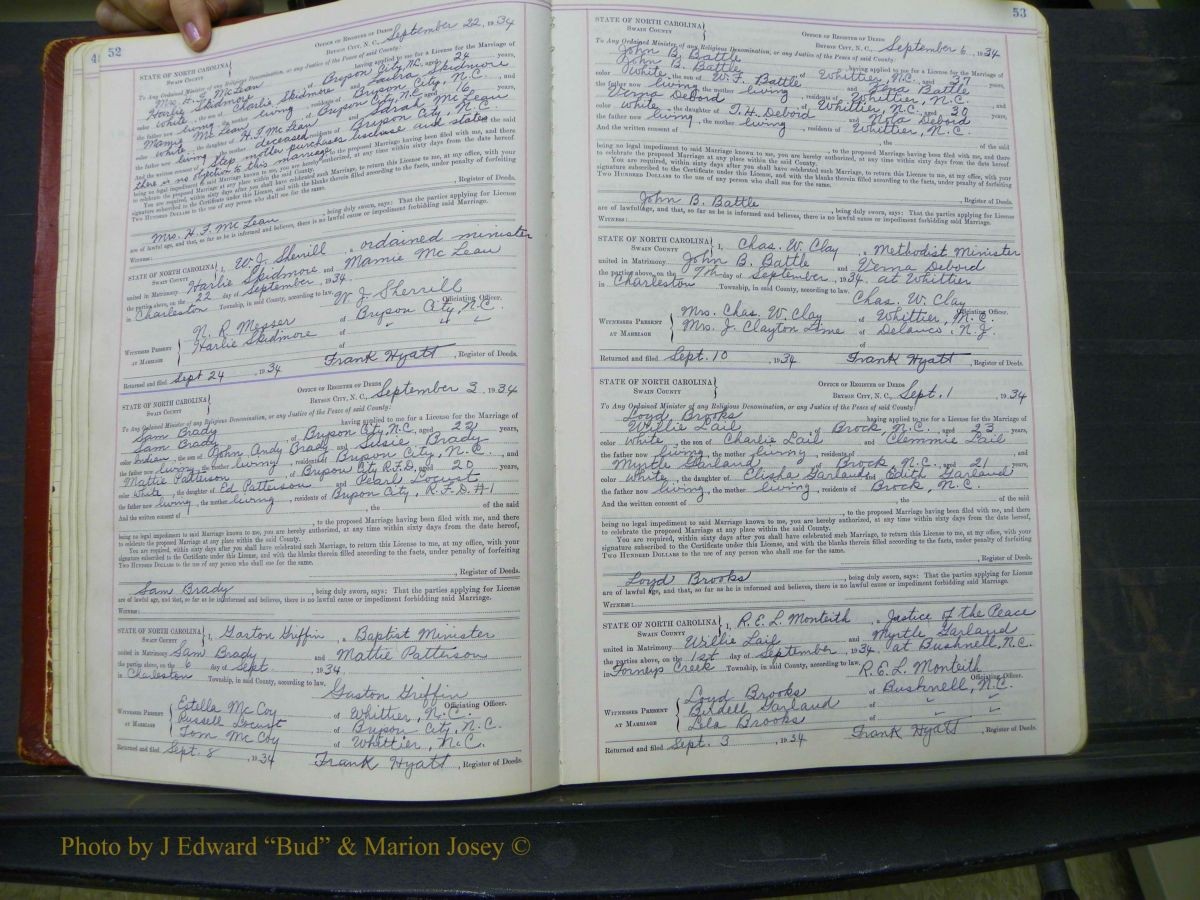 52
OFFICE OF REGISTER OF DEEDS
STATE OF NORTH CAROLINA
SWAIN COUNTY
BRYSON CITY, N. C., September 22, 1934
To Any Ordained Minister of any Religious Denomination, or any Justice of the Peace of said County:
Mrs. H. F. McLean having applied to me for a License for the Marriage of
Harlie Skidmore of Bryson City, N.C., aged 24 years,
color white, the son of Charlie Skidmore and Skidmore
the father now living, the mother living, residents of Bryson City, N.C., and
Mamie Mc Lean of Bryson City, N.C., aged 16 years,
color white, the daughter of H. F. Mc Lean and Sarah Mc Lean
the father now living, the mother deceased, residents of Bryson City, N.C.
And the written consent of Step mother purchases liscense and states the said
there is no objection to this marriage, to the proposed Marriage having been filed with me, and there
being no legal impediment to said Marriage known to me, you are hereby authorized, at any time within sixty days from the date hereof,
to celebrate the proposed Marriage at any place within the said County.
You are required, within sixty days after you shall have celebrated such Marriage, to return this License to me, at my office, with your
signature subscribed to the Certificate under this License, and with the blanks therein filled according to the facts, under penalty of forfeiting
TWO HUNDRED DOLLARS to the use of any person who shall sue for the same.
, Register of Deeds.
Mrs. H. F. Mc Lean, being duly sworn, says: That the parties applying for License
are of lawful age, and that, so far as he is informed and believes, there is no lawful cause or impediment forbidding said Marriage.
WITNESS:
STATE OF NORTH CAROLINA
SWAIN COUNTY
I, W. J. Sherrill, ordained minister
united in Matrimony Harlie Skidmore and Mamie Mc Lean
the parties above, on the 22 day of September, 1934
in Charleston Township, in said County, according to law.
W. J. Sherrill
Officiating Officer.
WITNESSES PRESENT AT MARRIAGE
N. R. Mosser of Bryson City, N.C.
Harlie Skidmore of " " "
of
Returned and filed Sept 24, 1934 Frank Hyatt, Register of Deeds.
STATE OF NORTH CAROLINA
SWAIN COUNTY
OFFICE OF REGISTER OF DEEDS
BRYSON CITY, N. C., September 3, 1934
To Any Ordained Minister of any Religious Denomination, or any Justice of the Peace of said County:
Sam Brady having applied to me for a License for the Marriage of
Sam Brady of Bryson City, N.C., aged 22 years,
color Indian, the son of John Andy Brady and Susie Brady
the father now living, the mother living, residents of Bryson City, N.C., and
Mattie Patterson of Bryson City R.F.D., aged 20 years,
color white, the daughter of Ed Patterson and Pearl Locust
the father now living, the mother living, residents of Bryson City, R.F.D.#1
And the written consent of , the of the said
, to the proposed Marriage having been filed with me, and there
being no legal impediment to said Marriage known to me, you are hereby authorized, at any time within sixty days from the date hereof,
to celebrate the proposed Marriage at any place within the said County.
You are required, within sixty days after you shall have celebrated such Marriage, to return this License to me, at my office, with your
signature subscribed to the Certificate under this License, and with the blanks therein filled according to the facts, under penalty of forfeiting
TWO HUNDRED DOLLARS to the use of any person who shall sue for the same.
, Register of Deeds.
Sam Brady, being duly sworn, says: That the parties applying for License
are of lawful age, and that, so far as he is informed and believes, there is no lawful cause or impediment forbidding said Marriage.
WITNESS:
STATE OF NORTH CAROLINA
SWAIN COUNTY
I, Gaston Griffin, a Baptist Minister
united in Matrimony Sam Brady and Mattie Patterson
the parties above, on the 6 day of Sept, 1934
in Charleston Township, in said County, according to law.
Gaston Griffin
Officiating Officer.
WITNESSES PRESENT AT MARRIAGE
Estella Mc Coy of Whittier, N.C.
Russell Locust of Bryson City, N.C.
Tom Mc Coy of Whittier, N.C.
Returned and filed Sept. 8, 1934 Frank Hyatt, Register of Deeds.
53
STATE OF NORTH CAROLINA
SWAIN COUNTY
OFFICE OF REGISTER OF DEEDS
BRYSON CITY, N. C., September 6, 1934
To Any Ordained Minister of any Religious Denomination, or any Justice of the Peace of said County:
John B. Battle having applied to me for a License for the Marriage of
John B. Battle of Whittier, N.C., aged 37 years,
color White, the son of W. F. Battle and Battle
the father now living, the mother living, residents of Whittier, N.C., and
Verna Debord of Whittier, N.C., aged 30 years,
color white, the daughter of T. H. Debord and Nola Debord
the father now living, the mother living, residents of Whittier, N.C.
And the written consent of , the of the said
, to the proposed Marriage having been filed with me, and there
being no legal impediment to said Marriage known to me, you are hereby authorized, at any time within sixty days from the date hereof,
to celebrate the proposed Marriage at any place within the said County.
You are required, within sixty days after you shall have celebrated such Marriage, to return this License to me, at my office, with your
signature subscribed to the Certificate under this License, and with the blanks therein filled according to the facts, under penalty of forfeiting
TWO HUNDRED DOLLARS to the use of any person who shall sue for the same.
, Register of Deeds.
John B. Battle, being duly sworn, says: That the parties applying for License
are of lawful age, and that, so far as he is informed and believes, there is no lawful cause or impediment forbidding said Marriage.
WITNESS:
STATE OF NORTH CAROLINA
SWAIN COUNTY
I, Chas. W. Clay, a Methodist Minister
united in Matrimony John B. Battle and Verna Debord
the parties above, on the 7th day of September, 1934 at Whittier
in Charleston Township, in said County, according to law.
Chas. W. Clay
Officiating Officer.
WITNESSES PRESENT AT MARRIAGE
Mrs. Chas. W. Clay of Whittier, N.C.
Mrs. J. Clayton Lime of Delanco, N.J.
of
Returned and filed Sept. 10, 1934 Frank Hyatt, Register of Deeds.
STATE OF NORTH CAROLINA
SWAIN COUNTY
OFFICE OF REGISTER OF DEEDS
BRYSON CITY, N. C., Sept. 1, 1934
To Any Ordained Minister of any Religious Denomination, or any Justice of the Peace of said County:
Loyd Brooks having applied to me for a License for the Marriage of
Willie Lail of Brock, N.C., aged 23 years,
color White, the son of Charlie Lail and Clemmie Lail
the father now living, the mother living, residents of , and
Myrtle Garland of Brock, N.C., aged 21 years,
color White, the daughter of Elisha Garland and Edith Garland
the father now living, the mother living, residents of Brock, N.C.
And the written consent of , the of the said
, to the proposed Marriage having been filed with me, and there
being no legal impediment to said Marriage known to me, you are hereby authorized, at any time within sixty days from the date hereof,
to celebrate the proposed Marriage at any place within the said County.
You are required, within sixty days after you shall have celebrated such Marriage, to return this License to me, at my office, with your
signature subscribed to the Certificate under this License, and with the blanks therein filled according to the facts, under penalty of forfeiting
TWO HUNDRED DOLLARS to the use of any person who shall sue for the same.
, Register of Deeds.
Loyd Brooks, being duly sworn, says: That the parties applying for License
are of lawful age, and that, so far as he is informed and believes, there is no lawful cause or impediment forbidding said Marriage.
WITNESS:
STATE OF NORTH CAROLINA
SWAIN COUNTY
I, R. E. L. Monteith, Justice of the Peace
united in Matrimony Willie Lail and Myrtle Garland
the parties above, on the 1st day of September, 1934, at Bushnell, N.C.
in Forneys Creek Township, in said County, according to law.
R. E. L. Monteith
Officiating Officer.
WITNESSES PRESENT AT MARRIAGE
Loyd Brooks of Bushnell, N.C.
Garland of " "
Lela Brooks of " "
Returned and filed Sept. 3, 1934 Frank Hyatt, Register of Deeds.
Photo by J Edward “Bud” & Marion Josey ©